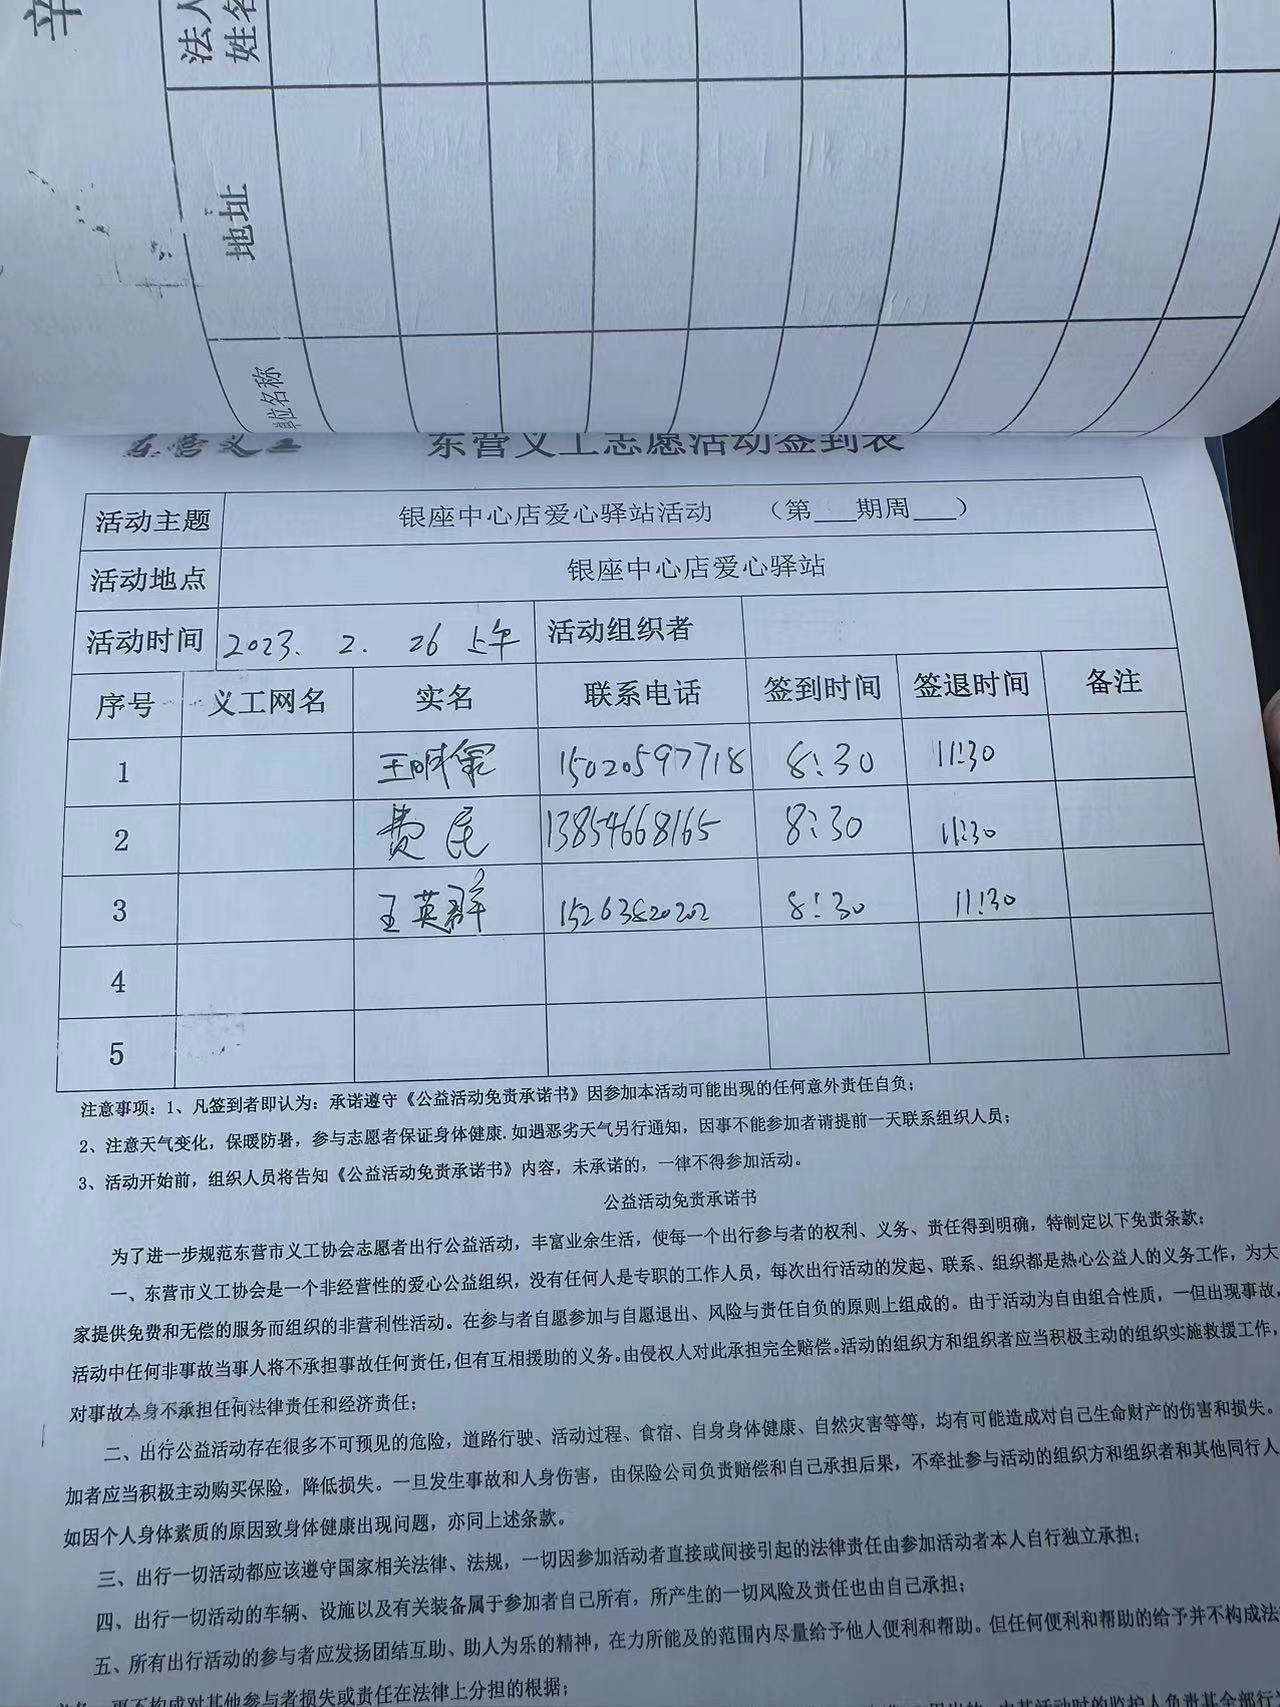 法人
姓名
地址
单位名称
东营义工 东营义工志愿活动签到表
活动主题 银座中心店爱心驿站活动 （第___期周___）
活动地点 银座中心店爱心驿站
活动时间 2023. 2. 26 上午 活动组织者
序号 义工网名 实名 联系电话 签到时间 签退时间 备注
1 王明军 15020597718 8:30 11:30
2 费民 13854668165 8:30 11:30
3 王英群 15263820202 8:30 11:30
4
5
注意事项：1、凡签到者即认为：承诺遵守《公益活动免责承诺书》因参加本活动可能出现的任何意外责任自负；
2、注意天气变化，保暖防暑，参与志愿者保证身体健康.如遇恶劣天气另行通知，因事不能参加者请提前一天联系组织人员；
3、活动开始前，组织人员将告知《公益活动免责承诺书》内容，未承诺的，一律不得参加活动。
公益活动免责承诺书
为了进一步规范东营市义工协会志愿者出行公益活动，丰富业余生活，使每一个出行参与者的权利、义务、责任得到明确，特制定以下免责条款：
一、东营市义工协会是一个非经营性的爱心公益组织，没有任何人是专职的工作人员，每次出行活动的发起、联系、组织都是热心公益人的义务工作，为大
家提供免费和无偿的服务而组织的非营利性活动。在参与者自愿参加与自愿退出、风险与责任自负的原则上组成的。由于活动为自由组合性质，一但出现事故，
活动中任何非事故当事人将不承担事故任何责任，但有互相援助的义务。由侵权人对此承担完全赔偿。活动的组织方和组织者应当积极主动的组织实施救援工作，
对事故本身不承担任何法律责任和经济责任；
二、出行公益活动存在很多不可预见的危险，道路行驶、活动过程、食宿、自身身体健康、自然灾害等等，均有可能造成对自己生命财产的伤害和损失。
加者应当积极主动购买保险，降低损失。一旦发生事故和人身伤害，由保险公司负责赔偿和自己承担后果，不牵扯参与活动的组织方和组织者和其他同行人
如因个人身体素质的原因致身体健康出现问题，亦同上述条款。
三、出行一切活动都应该遵守国家相关法律、法规，一切因参加活动者直接或间接引起的法律责任由参加活动者本人自行独立承担；
四、出行一切活动的车辆、设施以及有关装备属于参加者自己所有，所产生的一切风险及责任也由自己承担；
五、所有出行活动的参与者应发扬团结互助、助人为乐的精神，在力所能及的范围内尽量给予他人便利和帮助。但任何便利和帮助的给予并不构成法
更不构成对其他参与者损失或责任在法律上分担的根据；